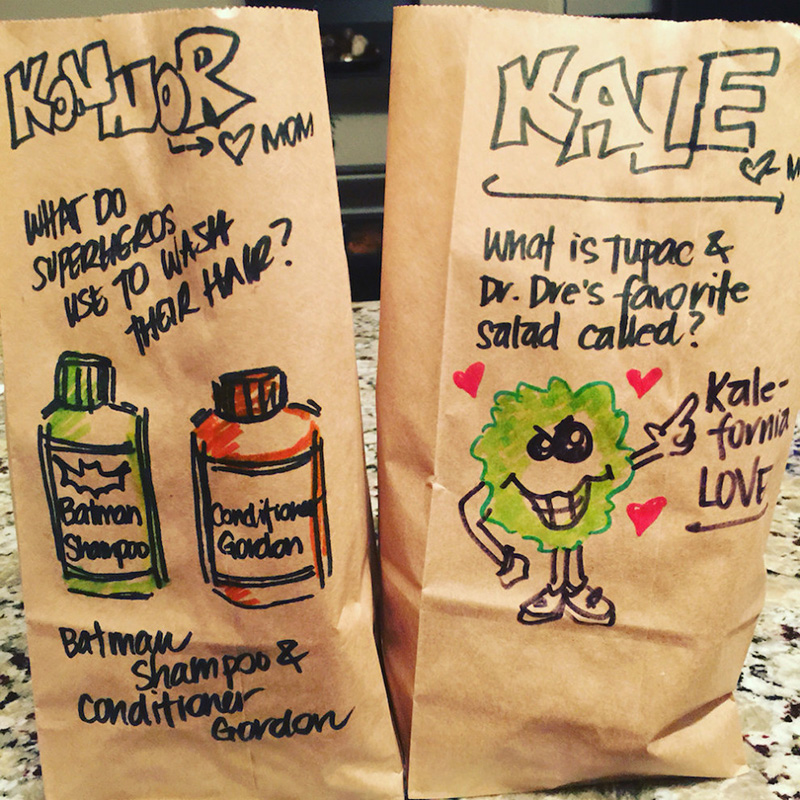 KONNOR
→ ♡ MOM
WHAT DO
SUPERHEROS
USE TO WASH
THEIR HAIR?
Batman
Shampoo
Conditioner
Gordon
Batman
Shampoo &
Conditioner
Gordon
KALE
♡ M
What is Tupac &
Dr. Dre's favorite
salad called?
Kale-
fornia
LOVE